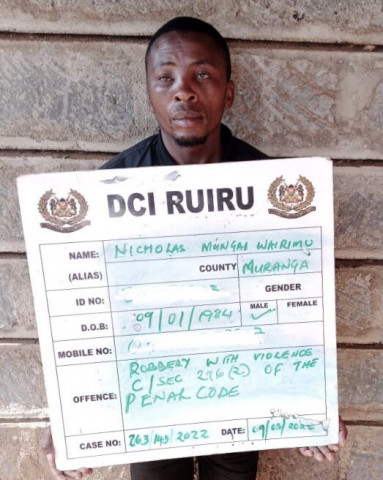 DCI RUIRU
NAME: NICHOLAS MUNGAI WAIRIMU
(ALIAS) COUNTY MURANGA
ID NO: 2 GENDER
D.O.B: 09/01/1984 MALE ✓ FEMALE
MOBILE NO: 2
ROBBERY WITH VIOLENCE
OFFENCE: C/SEC 296(2) OF THE
PENAL CODE
CASE NO: 263/143/2022 DATE: 09/03/2022